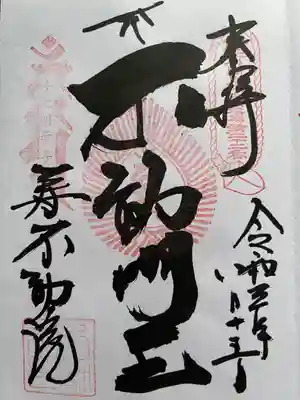 本尊
不動明王
令和三年
八月十五日
寿不動院